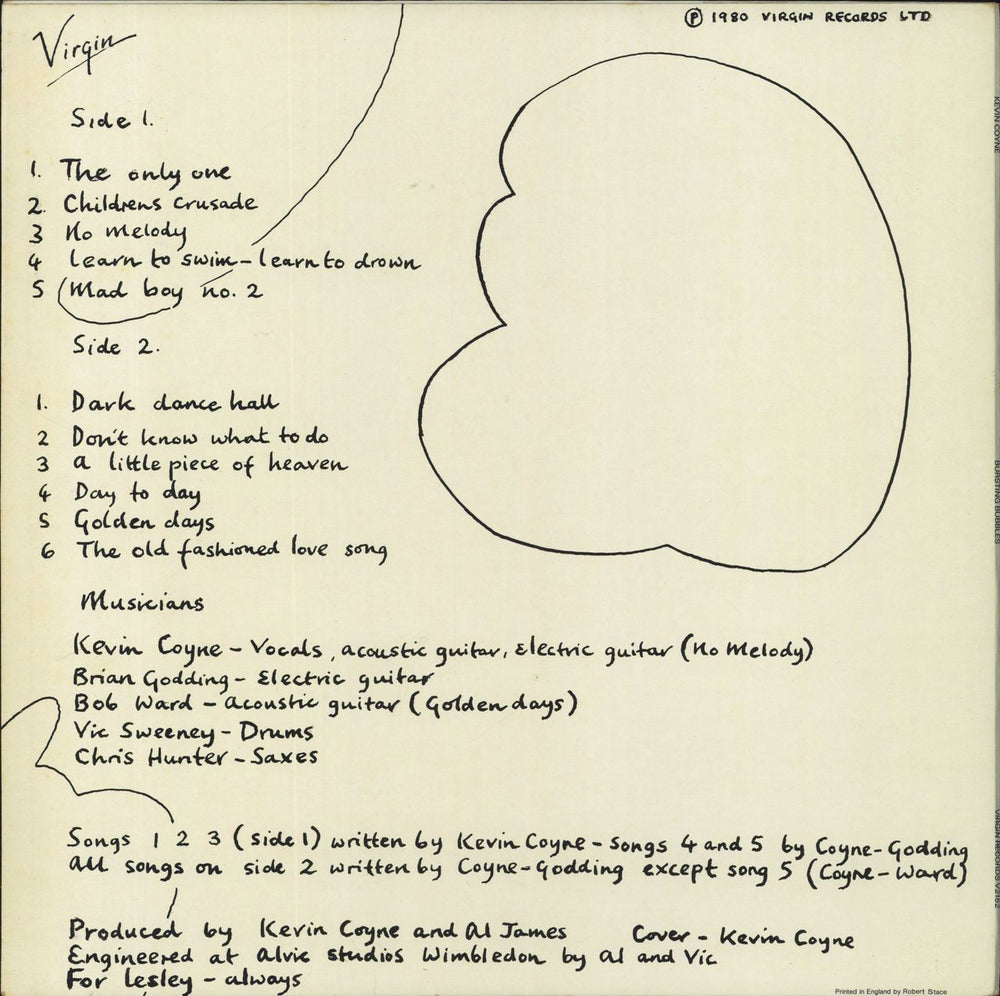 Virgin
Ⓟ 1980 VIRGIN RECORDS LTD
Side 1.
1. The only one
2. Childrens crusade
3 No melody
4 learn to swim - learn to drown
5 (Mad boy no. 2
Side 2.
1. Dark dance hall
2 Don't know what to do
3 a little piece of heaven
4 Day to day
5 Golden days
6 The old fashioned love song
Musicians
Kevin Coyne - Vocals, acoustic guitar, Electric guitar (No Melody)
Brian Godding - Electric guitar
Bob Ward - acoustic guitar (Golden days)
Vic Sweeney - Drums
Chris Hunter - Saxes
Songs 1 2 3 (side 1) written by Kevin Coyne - songs 4 and 5 by Coyne-Godding
All songs on side 2 written by Coyne-Godding except song 5 (Coyne-Ward)
Produced by Kevin Coyne and Al James
Cover - Kevin Coyne
Engineered at Alvic studios Wimbledon by Al and Vic
For Lesley - always
Printed in England by Robert Stace
KEVIN COYNE
BURSTING BUBBLES